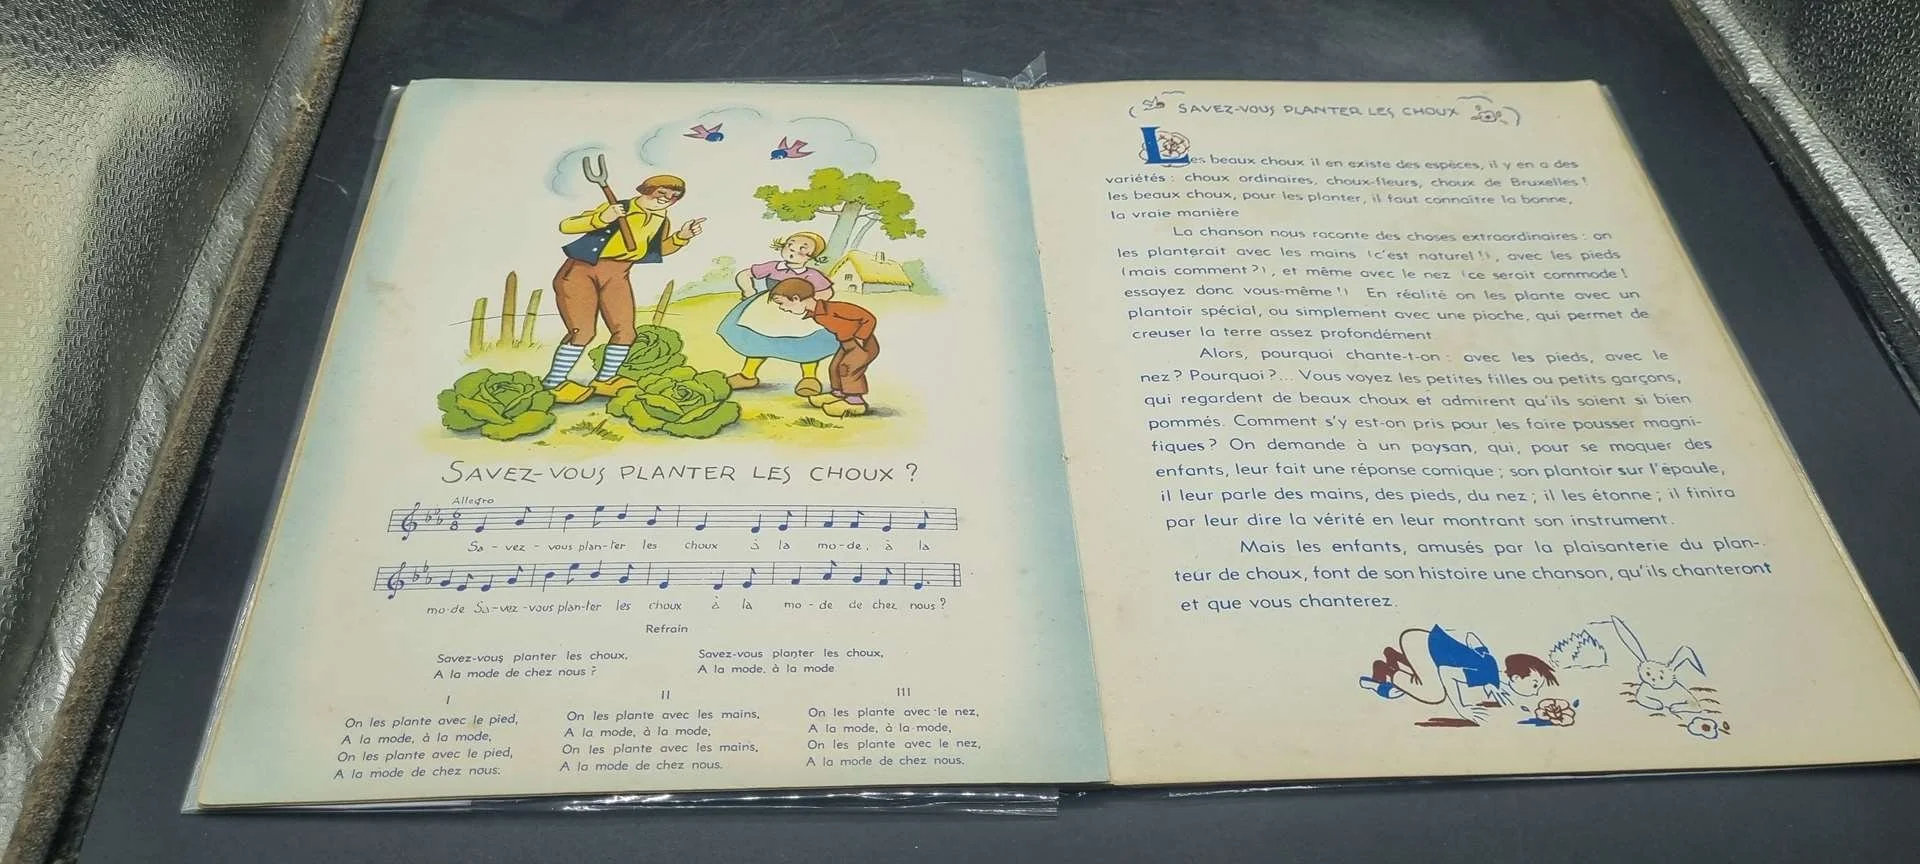 SAVEZ-VOUS PLANTER LES CHOUX ?
Allegro
6
8
Sa - vez - vous plan-ter les choux à la mo-de, à la
mo-de Sa-vez-vous plan-ter les choux à la mo-de de chez nous ?
Refrain
Savez-vous planter les choux,
A la mode de chez nous ?
Savez-vous planter les choux,
A la mode, à la mode
I
On les plante avec le pied,
A la mode, à la mode,
On les plante avec le pied,
A la mode de chez nous.
II
On les plante avec les mains,
A la mode, à la mode,
On les plante avec les mains,
A la mode de chez nous.
III
On les plante avec le nez,
A la mode, à la mode,
On les plante avec le nez,
A la mode de chez nous.
SAVEZ-VOUS PLANTER LES CHOUX
Les beaux choux il en existe des espèces, il y en a des
variétés : choux ordinaires, choux-fleurs, choux de Bruxelles !
les beaux choux, pour les planter, il faut connaître la bonne,
la vraie manière
La chanson nous raconte des choses extraordinaires : on
les planterait avec les mains (c'est naturel !), avec les pieds
(mais comment ?), et même avec le nez (ce serait commode !
essayez donc vous-même !) En réalité on les plante avec un
plantoir spécial, ou simplement avec une pioche, qui permet de
creuser la terre assez profondément
Alors, pourquoi chante-t-on : avec les pieds, avec le
nez ? Pourquoi ?... Vous voyez les petites filles ou petits garçons,
qui regardent de beaux choux et admirent qu'ils soient si bien
pommés. Comment s'y est-on pris pour les faire pousser magni-
fiques ? On demande à un paysan, qui, pour se moquer des
enfants, leur fait une réponse comique ; son plantoir sur l'épaule,
il leur parle des mains, des pieds, du nez ; il les étonne ; il finira
par leur dire la vérité en leur montrant son instrument.
Mais les enfants, amusés par la plaisanterie du plan-
teur de choux, font de son histoire une chanson, qu'ils chanteront
et que vous chanterez.